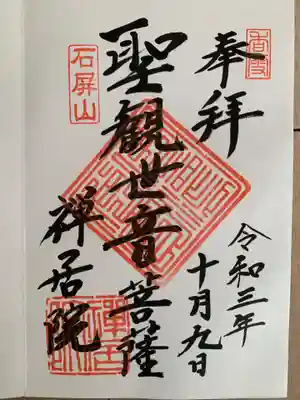 奉拝
令和三年
十月九日
聖観世音菩薩
石屏山
禅居院